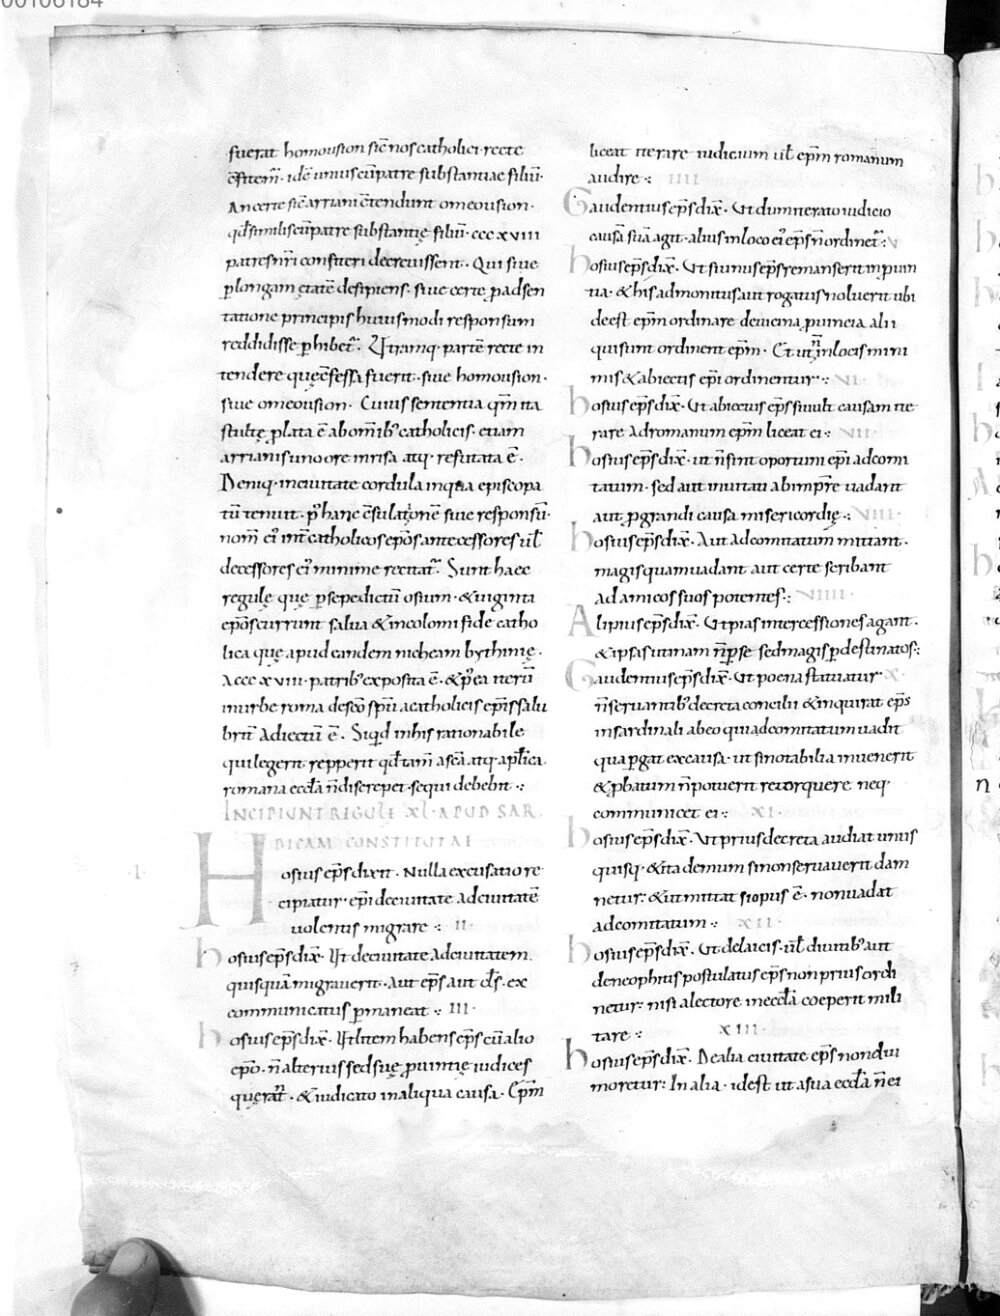 00106184
fuerat homousion sic̄ nos catholici recte
c̄fitem̃· idē unius cū patre substantiae filiū·
An certe sic̄ arriani c̄tendunt omeousion·
qđ similis cū patre substantię filiū· ccc xviii
patres nr̄i confiteri decreuissent· Qui siue
ꝑ longam ętatē desipiens· siue certe ꝑ adsen
tatione principis huiusmodi responsum
reddidisse ꝑhibet̃· Utramq· partē recte in
tendere quę c̄fessa fuerit· siue homousion·
siue omeousion· Cuius sententia qm̄ ita
stultę ꝑlata ē ab omīb; catholicis· etiam
arrianis uno ore inrisa atq· refutata ē·
Deniq· in ciuitate cordula in qua episcopa
tū tenuit· ꝑ hanc c̄sulatōnē siue responsū·
nom̄ ei int̄ catholicos ep̄os antecessores ul̄
decessores ei minime recitat̃· Sunt haec
regulę quę ꝑ sepedictū osium· & uiginta
ep̄os currunt salua & incolomi fide catho
lica quę apud eandem niceam bythinię·
A ccc xviii· patrib; exposita ē· & p̄ ea iterū
in urbe roma de sc̄o sp̄u a catholicis ep̄is salu
brit̄ adiectū ē· Siqd in his rationabile
qui legerit reppererit qđ tam̄ a sc̄a atq· ap̄lica
romana eccl̄a n̄ discrepet· sequi debebit·
INCIPIUNT REGULE XL· APUD SAR
DICAM CONSTITUTAE
·I·
Hosius ep̄s dixit· Nulla excusatio re
cipiatur· ep̄i de ciuitate ad ciuitatē
uolentis migrare· II·
hosius ep̄s dix̄· Ut de ciuitate ad ciuitatem
quisquā migrauerit· aut ep̄s aut cl̄s· ex
communicatus ꝑmaneat· III·
hosius ep̄s dix̄· Ut litem habens ep̄s cū alio
ep̄o· n̄ alterius sed suę ꝓuintię iudices
querat̃· & iudicato in aliqua causa· Ep̄m
liceat iterare iudicium ul̄ ep̄m romanum
audire· IIII
Gaudentius ep̄s dix̄· Ut dum iterato iudicio
causā suā agit· alius in loco ei ep̄s n̄ ordinet̃· V
hosius ep̄s dix̄· Ut si unus ep̄s remanserit in puin
tia· & his admonitus aut rogatus noluerit ubi
deest ep̄m ordinare de uicina ꝓuincia alii
qui sunt ordinent ep̄m· Et ut n̄ in locis mini
mis & abiectis ep̄i ordinentur· VI·
hosius ep̄s dix̄· Ut abiectus ep̄s simili causam ite
rare ad romanum ep̄m liceat ei· VII·
hosius ep̄s dix̄· ut n̄ sint oportuni ep̄i ad comi
tatum· sed aut inuitati ab imp̄re uadant
aut ꝑ grandi causa misericordię· VIII·
hosius ep̄s dix̄· Aut ad comitatum mittant·
magis quam uadant aut certe scribant
ad amicos suos potentes· VIIII·
Alipius ep̄s dix̄· Ut pias intercessiones agant·
& ipsas utinam n̄ ꝑ se sed magis ꝑ destinatos·
Gaudentius ep̄s dix̄· Ut poena statuatur X·
n̄ seruantib; decreta concilii & inquirat ep̄s
in sardinali ab eo qui ad comitatum uadit
qua ꝑgat ex causa· ut si notabilia inuenerit
& ꝓbatum n̄ potuerit retorquere neq·
communicet ei· XI·
hosius ep̄s dix̄· Ut prius decreta audiat unus
quisq· & ita demum si non seruauerit dam
netur· & ut mittat si opus ē· non uadat
ad comitatum· XII·
hosius ep̄s dix̄· Ut de laicis· ul̄ diuitib; aut
de neophitis postulatus ep̄s non prius ordi
netur· nisi a lectore in eccl̄a coeperit mili
tare· XIII·
hosius ep̄s dix̄· De alia ciuitate ep̄s non diu
moretur· In alia· idest ut a sua eccl̄a n̄ ei